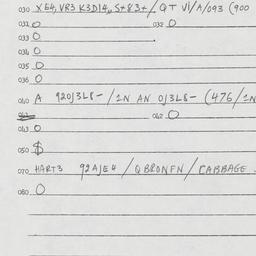 030 X E4, VR3 K3D14,, S+83+ / Q T VI/A/093 (900
031 O 032 O
033 O
034 O
035 O
036 O
040 A 920J3L8- / 1N AN 0J3L8- (476/1N
041 042 O
043 O
050 $
070 HART3 92AJE4 / QBRONFN / CABBAGE
080 O